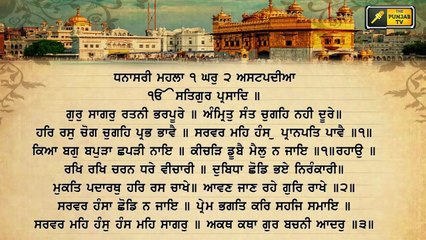 THE
PUNJAB
TV
ਧਨਾਸਰੀ ਮਹਲਾ ੧ ਘਰੁ ੨ ਅਸਟਪਦੀਆ
ੴ ਸਤਿਗੁਰ ਪ੍ਰਸਾਦਿ ॥
ਗੁਰੁ ਸਾਗਰੁ ਰਤਨੀ ਭਰਪੂਰੇ ॥ ਅੰਮ੍ਰਿਤੁ ਸੰਤ ਚੁਗਹਿ ਨਹੀ ਦੂਰੇ॥
ਹਰਿ ਰਸੁ ਚੋਗ ਚੁਗਹਿ ਪ੍ਰਭ ਭਾਵੈ ॥ ਸਰਵਰ ਮਹਿ ਹੰਸੁ ਪ੍ਰਾਨਪਤਿ ਪਾਵੈ ॥੧॥
ਕਿਆ ਬਗੁ ਬਪੁੜਾ ਛਪੜੀ ਨਾਇ ॥ ਕੀਚੜਿ ਡੂਬੈ ਮੈਲੁ ਨ ਜਾਇ ॥੧॥ਰਹਾਉ ॥
ਰਖਿ ਰਖਿ ਚਰਨ ਧਰੇ ਵੀਚਾਰੀ ॥ ਦੁਬਿਧਾ ਛੋਡਿ ਭਏ ਨਿਰੰਕਾਰੀ॥
ਮੁਕਤਿ ਪਦਾਰਥੁ ਹਰਿ ਰਸ ਚਾਖੇ॥ ਆਵਣ ਜਾਣ ਰਹੇ ਗੁਰਿ ਰਾਖੇ ॥੨॥
ਸਰਵਰ ਹੰਸਾ ਛੋਡਿ ਨ ਜਾਇ ॥ ਪ੍ਰੇਮ ਭਗਤਿ ਕਰਿ ਸਹਜਿ ਸਮਾਇ ॥
ਸਰਵਰ ਮਹਿ ਹੰਸੁ ਹੰਸ ਮਹਿ ਸਾਗਰੁ ॥ ਅਕਥ ਕਥਾ ਗੁਰ ਬਚਨੀ ਆਦਰੁ ॥੩॥